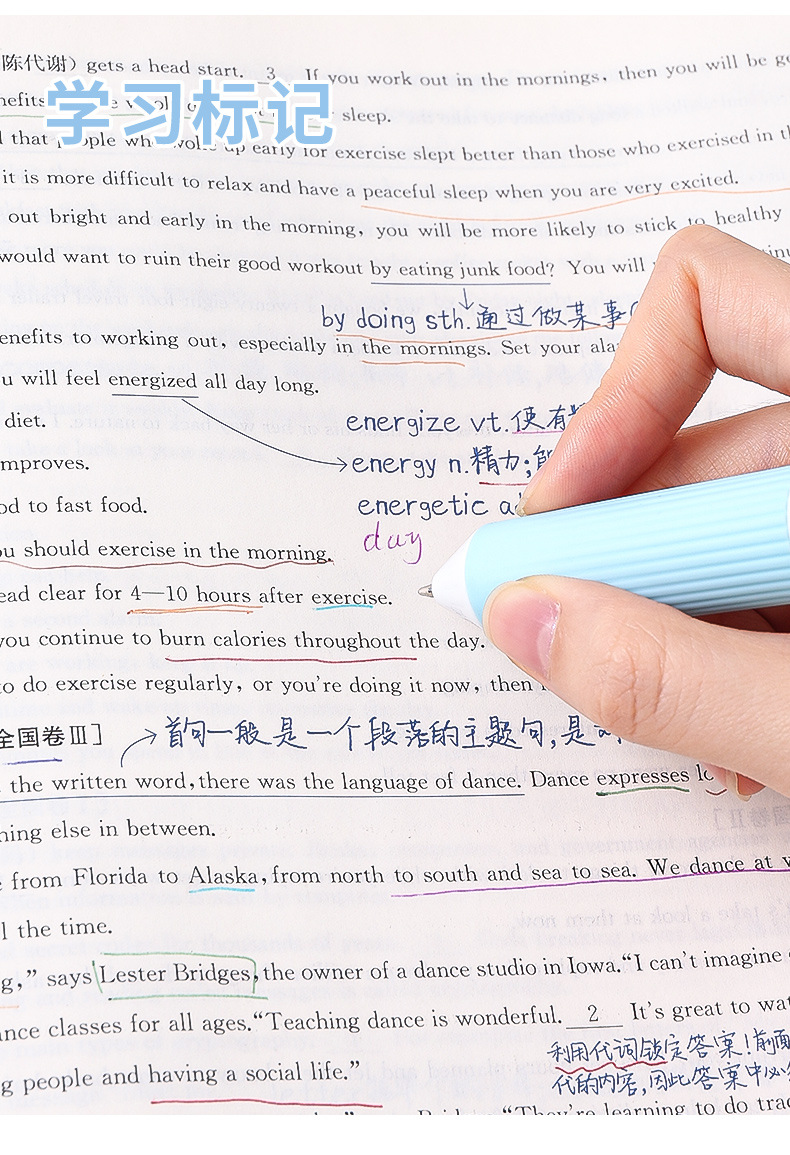 学习标记
陈代谢）gets a head start. 3 If you work out in the mornings, then you will be
sleep.
that people who woke up early for exercise slept better than those who exercised in
it is more difficult to relax and have a peaceful sleep when you are very excited.
out bright and early in the morning, you will be more likely to stick to healthy
would want to ruin their good workout by eating junk food? You will
by doing sth.通过做某事
benefits to working out, especially in the mornings. Set your
will feel energized all day long.
diet.
energize vt.使有
improves.
energy n.精力;
to fast food.
energetic
day
should exercise in the morning.
clear for 4—10 hours after exercise.
you continue to burn calories throughout the day.
to do exercise regularly, or you're doing it now, then
全国卷Ⅲ]
首句一般是一个段落的主题句,是
the written word, there was the language of dance. Dance expresses
else in between.
from Florida to Alaska, from north to south and sea to sea. We dance at
the time.
” says Lester Bridges, the owner of a dance studio in Iowa.“I can't imagine
classes for all ages.“Teaching dance is wonderful. 2 It's great to
利用代词锁定答案!前面
people and having a social life.”
代的内容,因此答案中必
“They're learning to do